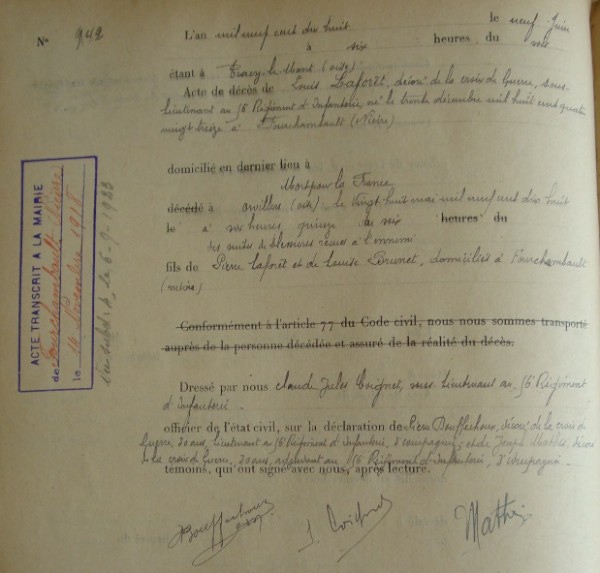 N° 942
L'an mil neuf cent dix huit le neuf Juin
à six heures du soir
étant à Tracy-le-Mont (oise)
Acte de décès de Louis Laforêt, décoré de la croix de Guerre, sous-
lieutenant au 56 Régiment d'Infanterie, né le trente décembre mil huit cent quatre
vingt treize à Fourchambault (Nièvre)
domicilié en dernier lieu à
Mort pour la France
décédé à (oise) le vingt huit mai mil neuf cent dix huit
le à six heures quinze du soir heures du
des suites de blessures reçues à l'ennemi
fils de Pierre Laforêt et de Louise Brunet, domiciliés à Fourchambault
(nièvre)
Conformément à l'article 77 du Code civil, nous nous sommes transporté
auprès de la personne décédée et assuré de la réalité du décès.
Dressé par nous Claude Jules Coignet, sous lieutenant au 56 Régiment
d'Infanterie
officier de l'état civil, sur la déclaration de Pierre, décoré de la croix de
Guerre, 30 ans, lieutenant au 56 Régiment d'Infanterie, 3 compagnie; et de Joseph, décoré
de la croix de Guerre, 30 ans, au 56 Régiment d'Infanterie, 3 Compagnie
témoins, qui ont signé avec nous, après lecture.
J. Coignet
ACTE TRANSCRIT A LA MAIRIE
de Fourchambault Nièvre
le 14 Novembre 1918